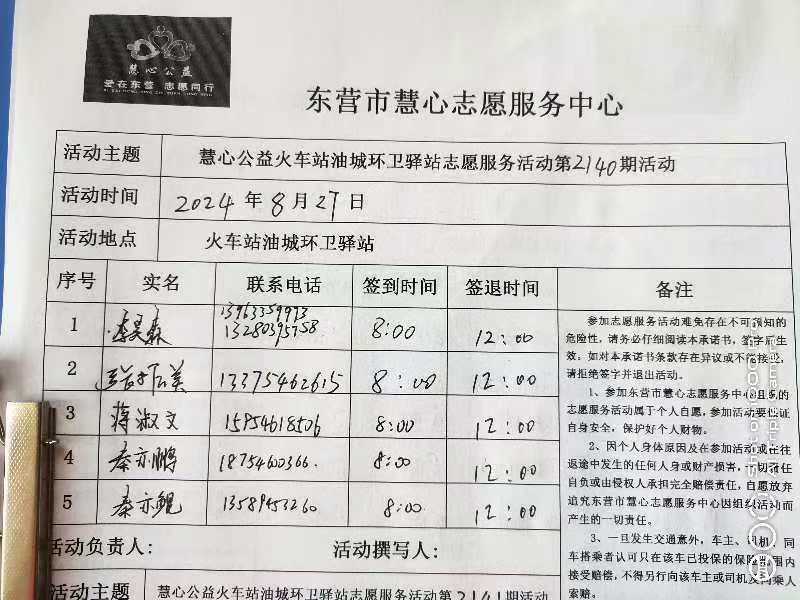 慧心公益
爱在东营 志愿同行
东营市慧心志愿服务中心
活动主题 慧心公益火车站油城环卫驿站志愿服务活动第2140期活动
活动时间 2024年8月27日
活动地点 火车站油城环卫驿站
序号 实名 联系电话 签到时间 签退时间 备注
1 13963359993
13280395758 8:00 12:00
2 13375462615 8:00 12:00
3 蒋淑文 15954618506 8:00 12:00
4 秦亦鹏 18754600366. 8:00 12:00
5 秦亦鲲 13589453260 8:00 12:00
参加志愿服务活动难免存在不可预知的
危险性，请务必仔细阅读本承诺书，签字后生
效；如对本承诺书条款存在异议或不能接受，
请拒绝签字并退出活动。
1、参加东营市慧心志愿服务中心组织的
志愿服务活动属于个人自愿，参加活动要保证
自身安全，保护好个人财物。
2、因个人身体原因及在参加活动或在往
返途中发生的任何人身或财产损害，一切责任
自负或由侵权人承担完全赔偿责任，自愿放弃
追究东营市慧心志愿服务中心因组织活动而
产生的一切责任。
3、一旦发生交通意外，车主、司机、同
车搭乘者认可只在该车已投保的保险范围内
接受赔偿，不得另行向该车主或司机及同乘人
索赔。
活动负责人： 活动撰写人：
活动主题 慧心公益火车站油城环卫驿站志愿服务活动第2141期活动